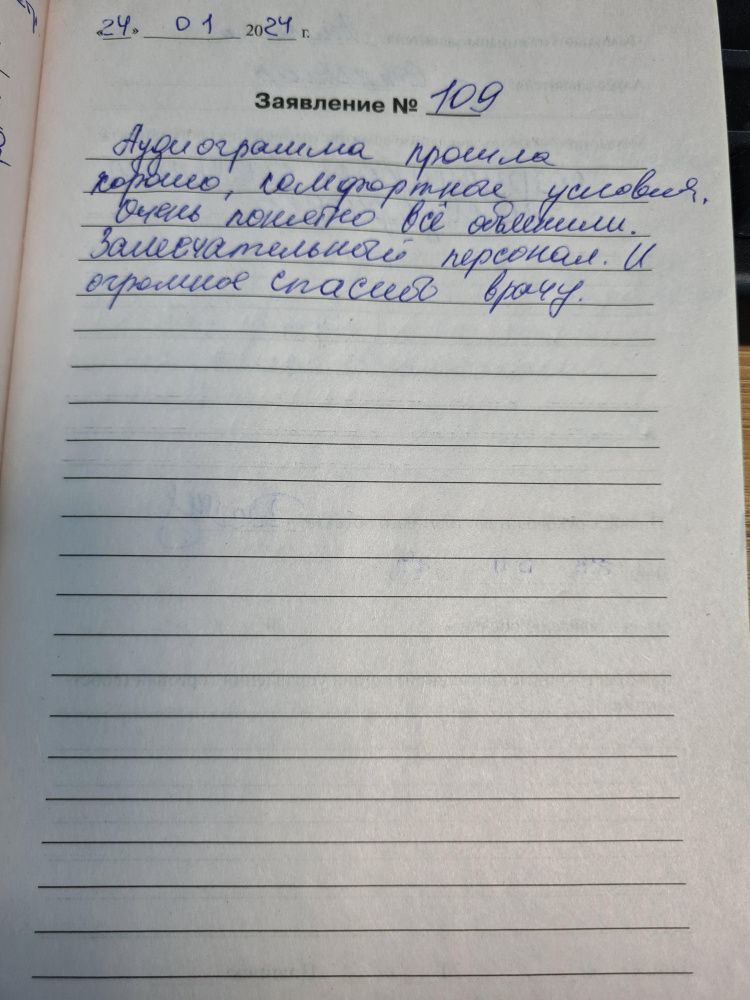 «24» 01 2024 г.
Заявление № 109
Аудиограмма прошла
хорошо, комфортные условия.
Очень понятно всё объяснили.
Замесчательный персонал. И
огромное спасибо врачу.